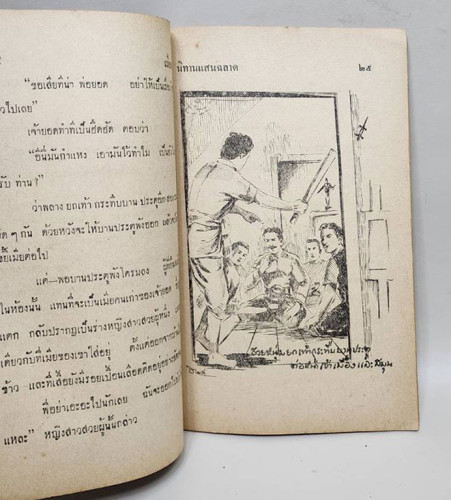 "ขอเสียทีน่า พ่อยอด อย่าให้เป็นเรื่อ
วไปเลย"
เจ้ายอดทำทีเป็นฮึดฮัด ตอบว่า
"อีนี่มันกำแหง เอามันไว้ทำไม เป็นไ
รับ ท่าน?"
ว่าพลาง ยกเท้า กระทืบบาน ประตู
ๆ กัน ด้วยหวังจะให้บานประตูพังออก
เมียต่อไป
แต่—พอบานประตูพังโครมลง
ในห้องนั้น แทนที่จะเป็นเมียคนเก่าของเจ้ายอด
แตก กลับปรากฏเป็นร่างหญิงสาวสวยผู้หนึ่ง
เดียวกับที่เมียของเขาใส่อยู่ ตั้งแต่ออกจาก
ข้าว และที่เสื้อยังมีรอยเปื้อนเลือดติดอยู่อย่าง
พี่อย่าเอะอะไปนักเลย ฉันจะออกไป
แหละ" หญิงสาวสวยผู้นั้นกล่าว
นิทานแสนฉลาด ๒๕
ชายหนุ่มยกเท้ากระทืบบานประตู